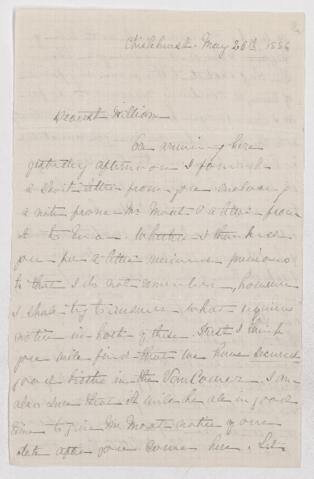 Chislehurst May 26th, 1886
Dearest William
On arriving here
yesterday afternoon I found
a short letter from you enclosing
a note from Mr Moat & a letter from
to Whether I thanked
you for a letter received previous
to that I do not remember, however
I shall try to answer what requires
notice in both of these. First I think
you will find that we have secured
good berths in the I am
also sure that it will be all in good
time to give Mr Moat notice of your
date after you come here. Let